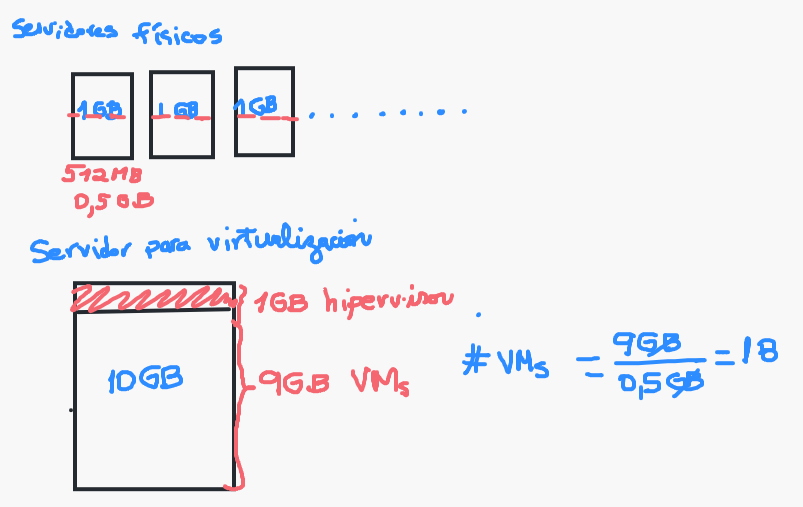 Servidores físicos
1GB 1GB 1GB ........
512MB
0,5GB
Servidor para virtualización
1GB hipervisor
10GB
9GB VMs
# VMs = 9GB / 0,5GB = 18